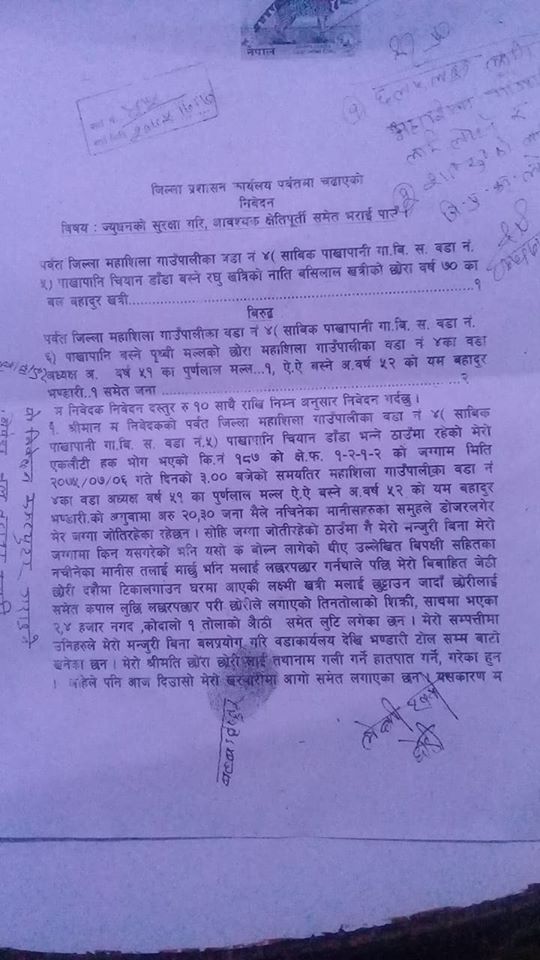 नेपाल
जिल्ला प्रशासन कार्यलय पर्वतमा चढाएको
निवेदन
विषय : ज्युधनको सुरक्षा गरि, आवश्यक क्षेतिपूर्ती समेत भराई पाउँ ।
पर्वत जिल्ला महाशिला गाउँपालीका वडा नं ४( साबिक पाखापानी गा.बि. स. वडा नं.
५) पाखापानि चियान डाँडा बस्ने रघु खत्रिको नाति बसिलाल खत्रीको छोरा वर्ष ७० का
बल बहादुर खत्री..............................................................................१
बिरुद्ध
पर्वत जिल्ला महाशिला गाउँपालीका वडा नं ४( साबिक पाखापानी गा.बि. स. वडा नं.
६) पाखापानि बस्ने पृथ्वी मल्लको छोरा महाशिला गाउँपालीका वडा नं ४का वडा
अध्यक्ष अ. वर्ष ५१ का पुर्णलाल मल्ल...१, ऐ.ऐ बस्ने अ.वर्ष ५२ को यम बहादुर
भण्डारी..१ समेत जना ..............................................................२
म निवेदक निवेदन दस्तुर रु १० साथै राखि निम्न अनुसार निवेदन गर्दछु ।
१. श्रीमान म निवेदकको पर्वत जिल्ला महाशिला गाउँपालीका वडा नं ४( साबिक
पाखापानी गा.बि. स. वडा नं.५) पाखापानि चियान डाँडा भन्ने ठाउँमा रहेको मेरो
एकलौटी हक भोग भएको कि.नं १८७ को क्षे.फ. १-२-१-२ को जग्गाम मिति
२०७५/०७/०६ गते दिनको ३.०० बजेको समयतिर महाशिला गाउँपालीका वडा नं
४का वडा अध्यक्ष वर्ष ५१ का पुर्णलाल मल्ल ऐ.ऐ बस्ने अ.वर्ष ५२ को यम बहादुर
भण्डारी.को अगुवामा अरु २०,३० जना मैले नचिनेका मानीसहरुको समुहले डोजरलगेर
मेर जग्गा जोतिरहेका रहेछन । सोहि जग्गा जोतीरहेको ठाउँमा गै मेरो मन्जुरी बिना मेरो
जग्गामा किन यसगरेको भनि यसो के बोल्न लागेको थीए उल्लेखित बिपक्षी सहितका
नचीनेका मानीस तलाई मार्छु भनि मलाई लछारपछार गर्नथाले पछि मेरो बिबाहित जेठी
छोरी दशैमा टिकालगाउन घरमा आएकी लक्ष्मी खत्री मलाई छुट्टाउन जादाँ छोरीलाई
समेत कपाल लुछि लछरपछार परी छोरीले लगाएको तिनतोलाको शिक्री, साथमा भएका
२,४ हजार नगद ,कोदालो १ तोलाको औठी समेत लुटि लगेका छन । मेरो सम्पत्तीमा
उनिहरुले मेरो मन्जुरी बिना बलप्रयोग गरि वडाकार्यलय देखि भण्डारी टोल सम्म बाटो
खनेका छन । मेरो श्रीमति छोरा छोरी लाई तथानाम गली गर्ने हातपात गर्ने, गरेका हुन
। अहिले पनि आज दिउसो मेरो खरबारीमा आगो समेत लगाएका छन । यसकारण म